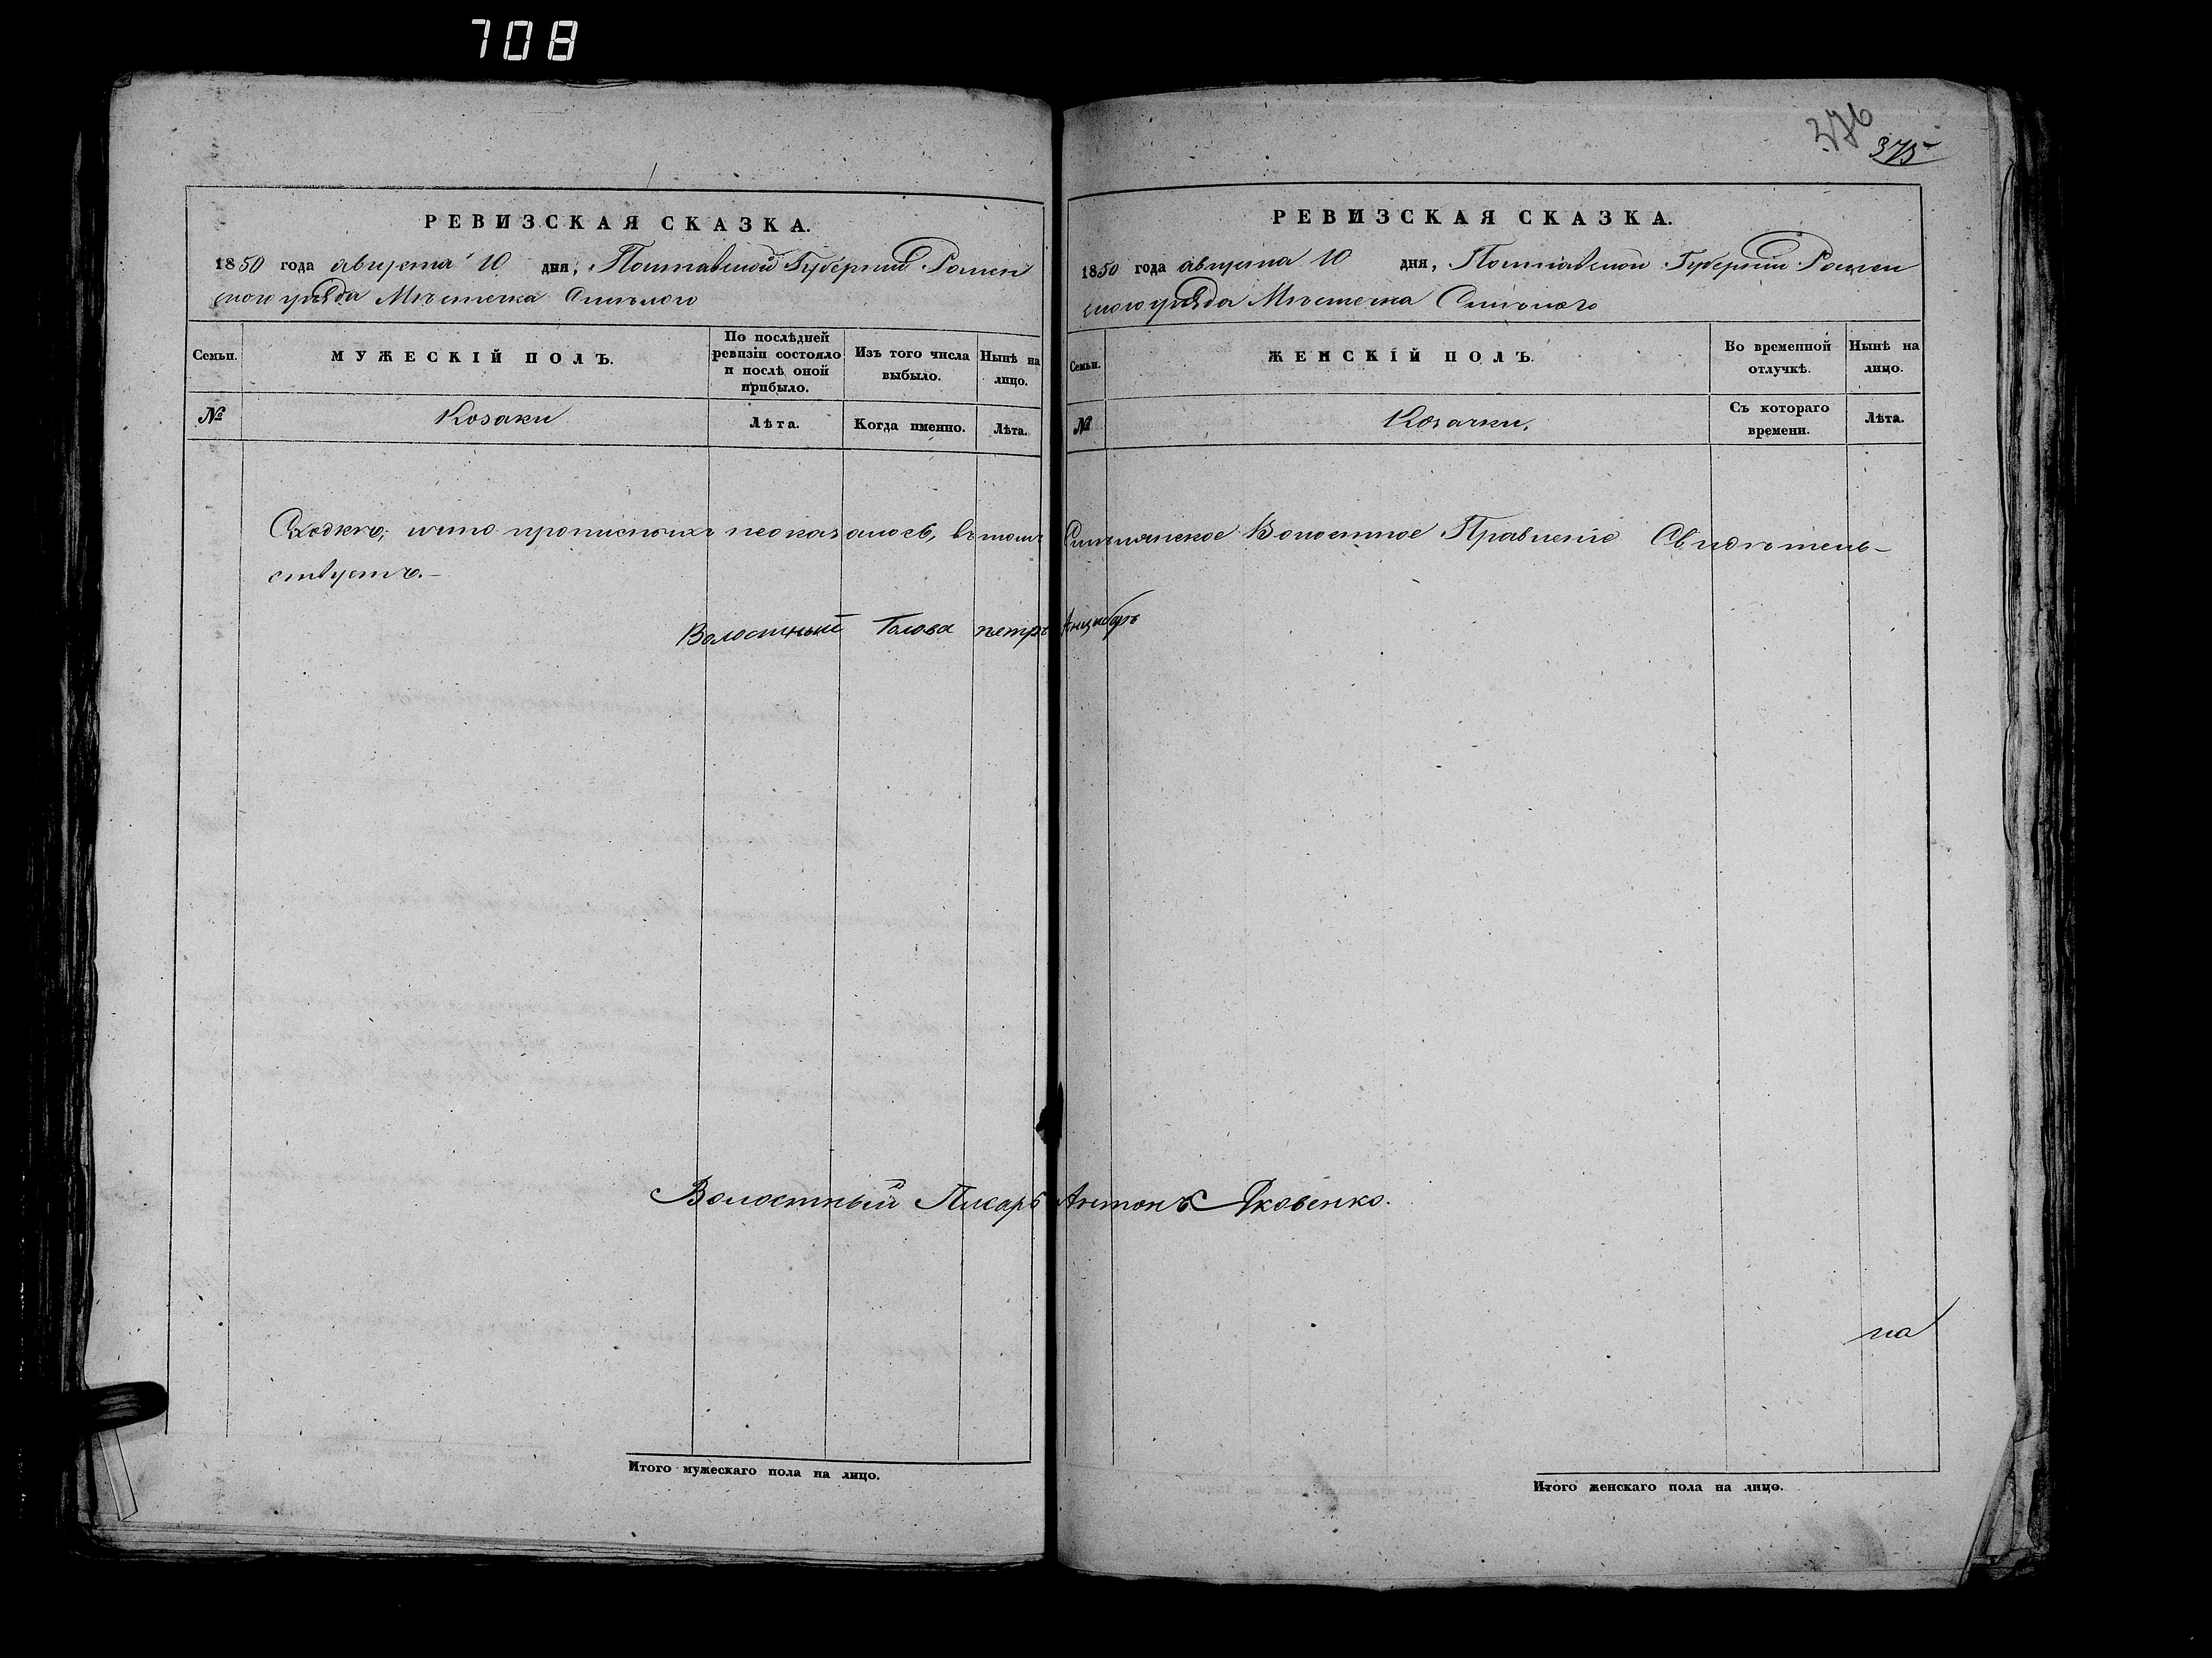 708
376
375
РЕВИЗСКАЯ СКАЗКА.
1850 года августа 10 дня, Полтавской Губерніи Ромен
скаго уѣзда Мѣстечка Смѣлого
Семьи.
МУЖЕСКІЙ ПОЛЪ.
По послѣдней ревизіи состояло и послѣ оной прибыло.
Изъ того числа выбыло.
Нынѣ на лицо.
№
Козаки
Лѣта.
Когда именно.
Лѣта.
РЕВИЗСКАЯ СКАЗКА.
1850 года августа 10 дня, Полтавской Губерніи Ромен
скаго уѣзда Мѣстечка Смѣлого
Семьи.
ЖЕНСКІЙ ПОЛЪ.
Во временной отлучкѣ.
Нынѣ на лицо.
№
Козачки,
Съ котораго времени.
Лѣта.
что прописныхъ неоказалось, въ томъ Смѣлянское Волостное Правленіе Свидѣтель-
ствуетъ.-
Волостный Голова петръ
Волостный Писарь Антонъ Яковенко.
на
Итого мужескаго пола на лицо.
Итого женскаго пола на лицо.